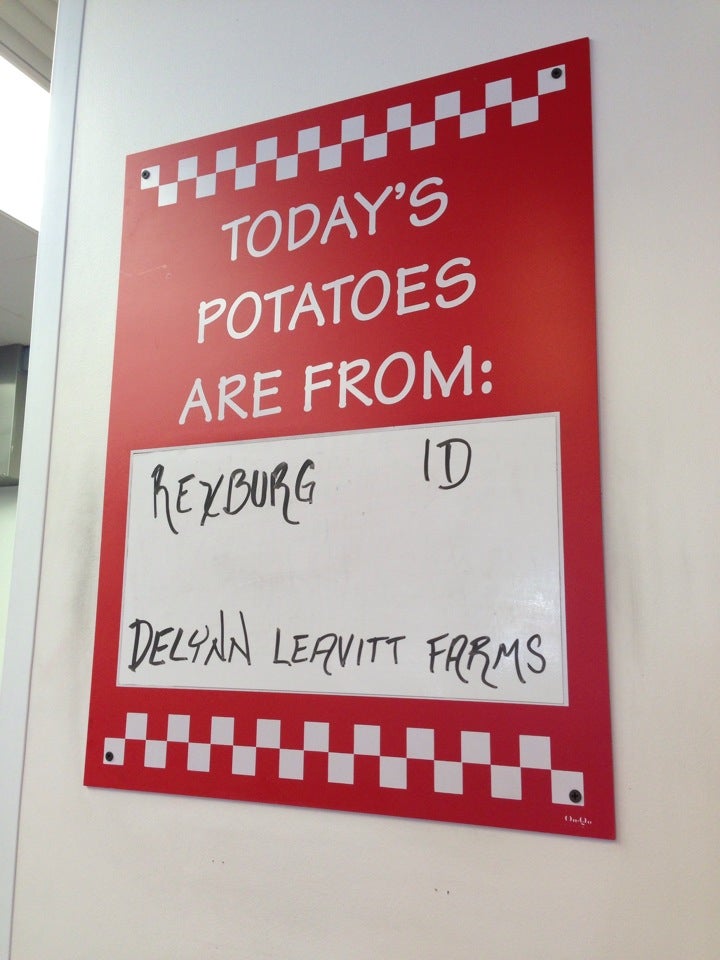 TODAY'S
POTATOES
ARE FROM:
REXBURG ID
DELYNN LEAVITT FARMS